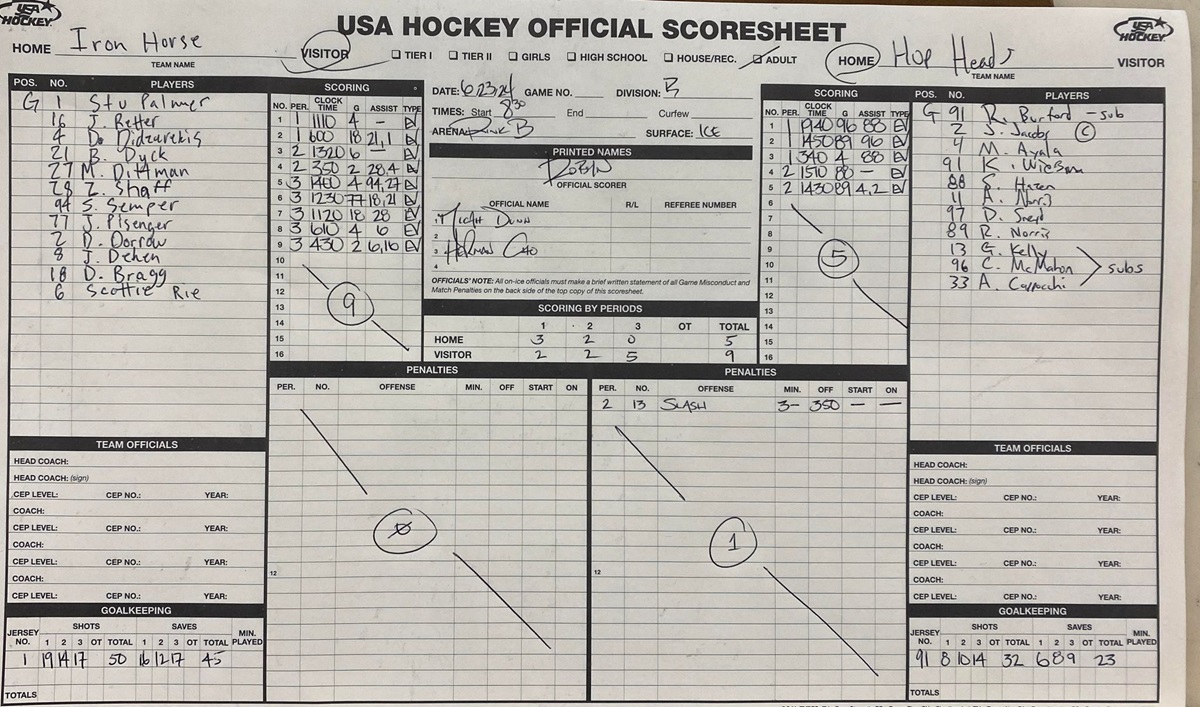 USA HOCKEY
USA HOCKEY OFFICIAL SCORESHEET
USA HOCKEY
HOME Iron Horse VISITOR
TEAM NAME
☐ TIER I ☐ TIER II ☐ GIRLS ☐ HIGH SCHOOL ☐ HOUSE/REC. ☑ ADULT
HOME Hop Heads VISITOR
TEAM NAME
POS. NO. PLAYERS
G 1 Stu Palmer
16 J. Retter
4 D. Didzarekis
21 B. Dyck
27 M. Dittman
28 Z. Shaff
94 S. Semper
77 J. Pisenger
2 D. Dorrow
8 J. Dehen
18 D. Bragg
6 Scottie Rie
SCORING
NO. PER. CLOCK TIME G ASSIST TYPE
1 1 1110 4 - EV
2 1 600 18 21,1 EV
3 2 1320 6 - EV
4 2 350 2 28,4 EV
5 3 1400 4 94,27 EV
6 3 1230 77 18,21 EV
7 3 1120 18 28 EV
8 3 610 4 6 EV
9 3 430 2 6,16 EV
10
11
12
13
14
15
16
9
DATE: 6/23/24 GAME NO. DIVISION: B
TIMES: Start 8:30 End Curfew
ARENA: Rink B SURFACE: ICE
PRINTED NAMES
ROBIN
OFFICIAL SCORER
OFFICIAL NAME R/L REFEREE NUMBER
1 Micah Dunn
2
3 Herman Cao
4
OFFICIALS' NOTE: All on-ice officials must make a brief written statement of all Game Misconduct and
Match Penalties on the back side of the top copy of this scoresheet.
SCORING BY PERIODS
1 2 3 OT TOTAL
HOME 3 2 0 5
VISITOR 2 2 5 9
SCORING
NO. PER. CLOCK TIME G ASSIST TYPE
1 1 1940 96 88 EV
2 1 1450 89 96 EV
3 1 340 4 88 EV
4 2 1510 88 - EV
5 2 1430 89 4,2 EV
6
7
8
9
10
11
12
13
14
15
16
5
POS. NO. PLAYERS
G 91 R. Burford - sub
2 J. Jacobs C
4 M. Ayala
91 K. Wielson
88 Hazen
11 A. Norris
97 D. Sneyd
89 R. Norris
13 G. Kelly
96 C. McMahon
33 A. Cappocchi
subs
PENALTIES
PER. NO. OFFENSE MIN. OFF START ON
12
0
PENALTIES
PER. NO. OFFENSE MIN. OFF START ON
2 13 SLASH 3- 350 — —
12
1
TEAM OFFICIALS
HEAD COACH:
HEAD COACH: (sign)
CEP LEVEL: CEP NO.: YEAR:
COACH:
CEP LEVEL: CEP NO.: YEAR:
COACH:
CEP LEVEL: CEP NO.: YEAR:
COACH:
CEP LEVEL: CEP NO.: YEAR:
GOALKEEPING
SHOTS SAVES
JERSEY NO. 1 2 3 OT TOTAL 1 2 3 OT TOTAL MIN. PLAYED
1 19 14 17 50 16 12 17 45
TOTALS
TEAM OFFICIALS
HEAD COACH:
HEAD COACH: (sign)
CEP LEVEL: CEP NO.: YEAR:
COACH:
CEP LEVEL: CEP NO.: YEAR:
COACH:
CEP LEVEL: CEP NO.: YEAR:
COACH:
CEP LEVEL: CEP NO.: YEAR:
GOALKEEPING
SHOTS SAVES
JERSEY NO. 1 2 3 OT TOTAL 1 2 3 OT TOTAL MIN. PLAYED
91 8 10 14 32 6 8 9 23
TOTALS